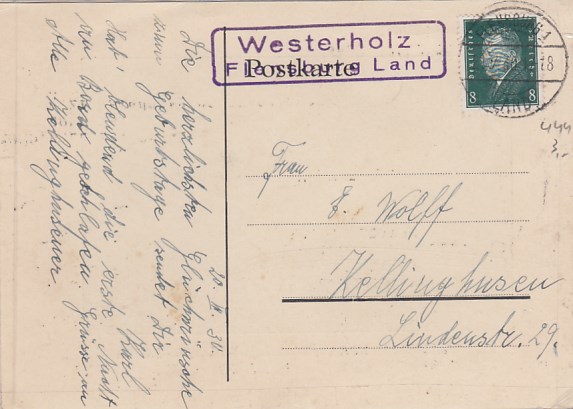 Westerholz
Flensburg Land
Postkarte
DEUTSCHES REICH
8 8
Frau
E. Wolff
Kellinghusen
Lindenstr. 29.
444
3,-
20. 30.
Die herzlichsten Glückwünsche
zum Geburtstage sendet Dir
Karl
heute die erste Nacht
im Bade geschlafen. Grüsse an
Alle Kellinghusener.